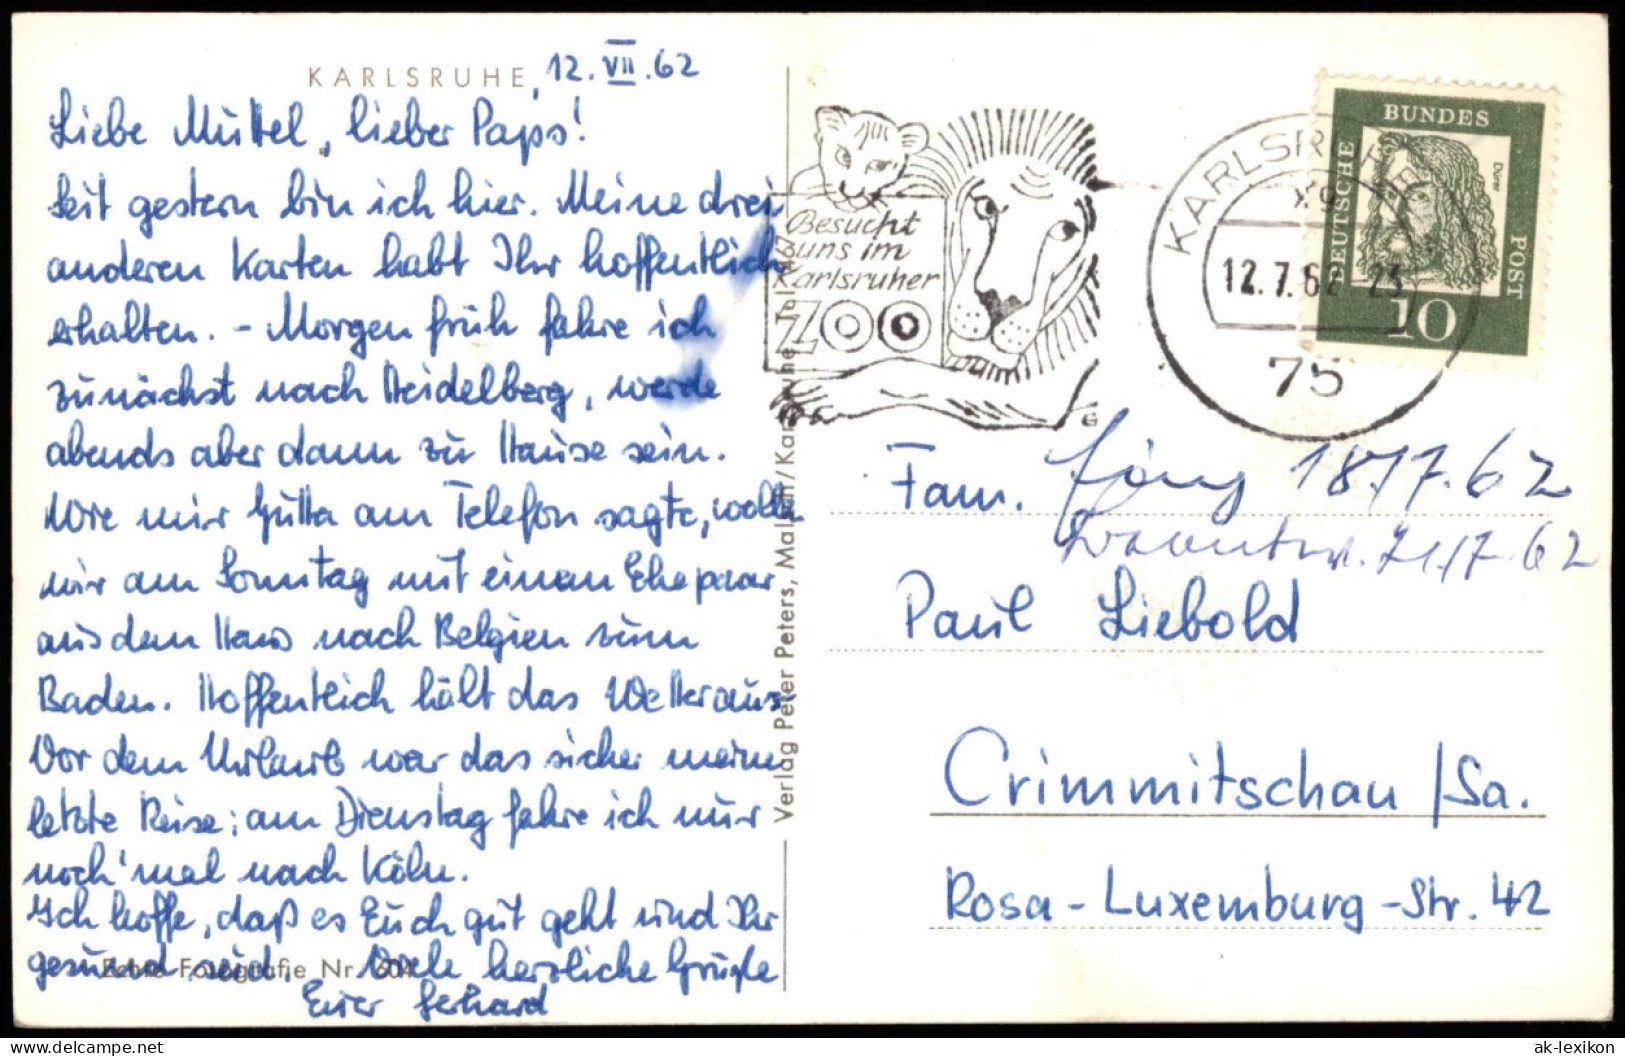 KARLSRUHE, 12. VII. 62
Liebe Muttel, lieber Paps!
Seit gestern bin ich hier. Meine drei
anderen Karten habt Ihr hoffentlich
erhalten. - Morgen früh fahre ich
zunächst nach Heidelberg, werde
abends aber dann zu Hause sein.
Wie mir Jutta am Telefon sagte, wollen
wir am Sonntag mit einem Ehepaar
aus dem Haus nach Belgien zum
Baden. Hoffentlich hält das Wetter aus.
Vor dem Urlaub war das sicher meine
letzte Reise; am Dienstag fahre ich nur
noch 'mal nach Köln.
Ich hoffe, daß es Euch gut geht und Ihr
gesund seid. Viele herzliche Grüße
Euer Gerhard
Echte Fotografie Nr. 604
Verlag Peter Peters, Malsch/Karlsruhe, Tel.
Besucht
uns im
Karlsruher
ZOO
G
KARLSRUHE
12.7.62-23
75
DEUTSCHE BUNDES POST
Dürer
10
Fam.
18/7.62
21/7.62
Paul Liebold
Crimmitschau /Sa.
Rosa-Luxemburg-Str. 42
ak-lexikon
delcampe.net